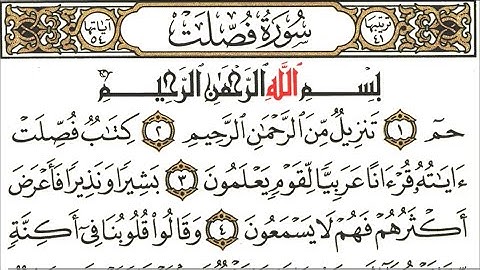 ترتيبها ٤١ سُورَةُ فُصِّلَتْ آياتها ٥٤
بِسْمِ اللَّهِ الرَّحْمَٰنِ الرَّحِيمِ
حمٓ ١ تَنزِيلٌ مِّنَ الرَّحْمَٰنِ الرَّحِيمِ ٢ كِتَابٌ فُصِّلَتْ
ءَايَاتُهُ قُرْءَانًا عَرَبِيًّا لِّقَوْمٍ يَعْلَمُونَ ٣ بَشِيرًا وَنَذِيرًا فَأَعْرَضَ
أَكْثَرُهُمْ فَهُمْ لَا يَسْمَعُونَ ٤ وَقَالُوا قُلُوبُنَا فِي أَكِنَّةٍ